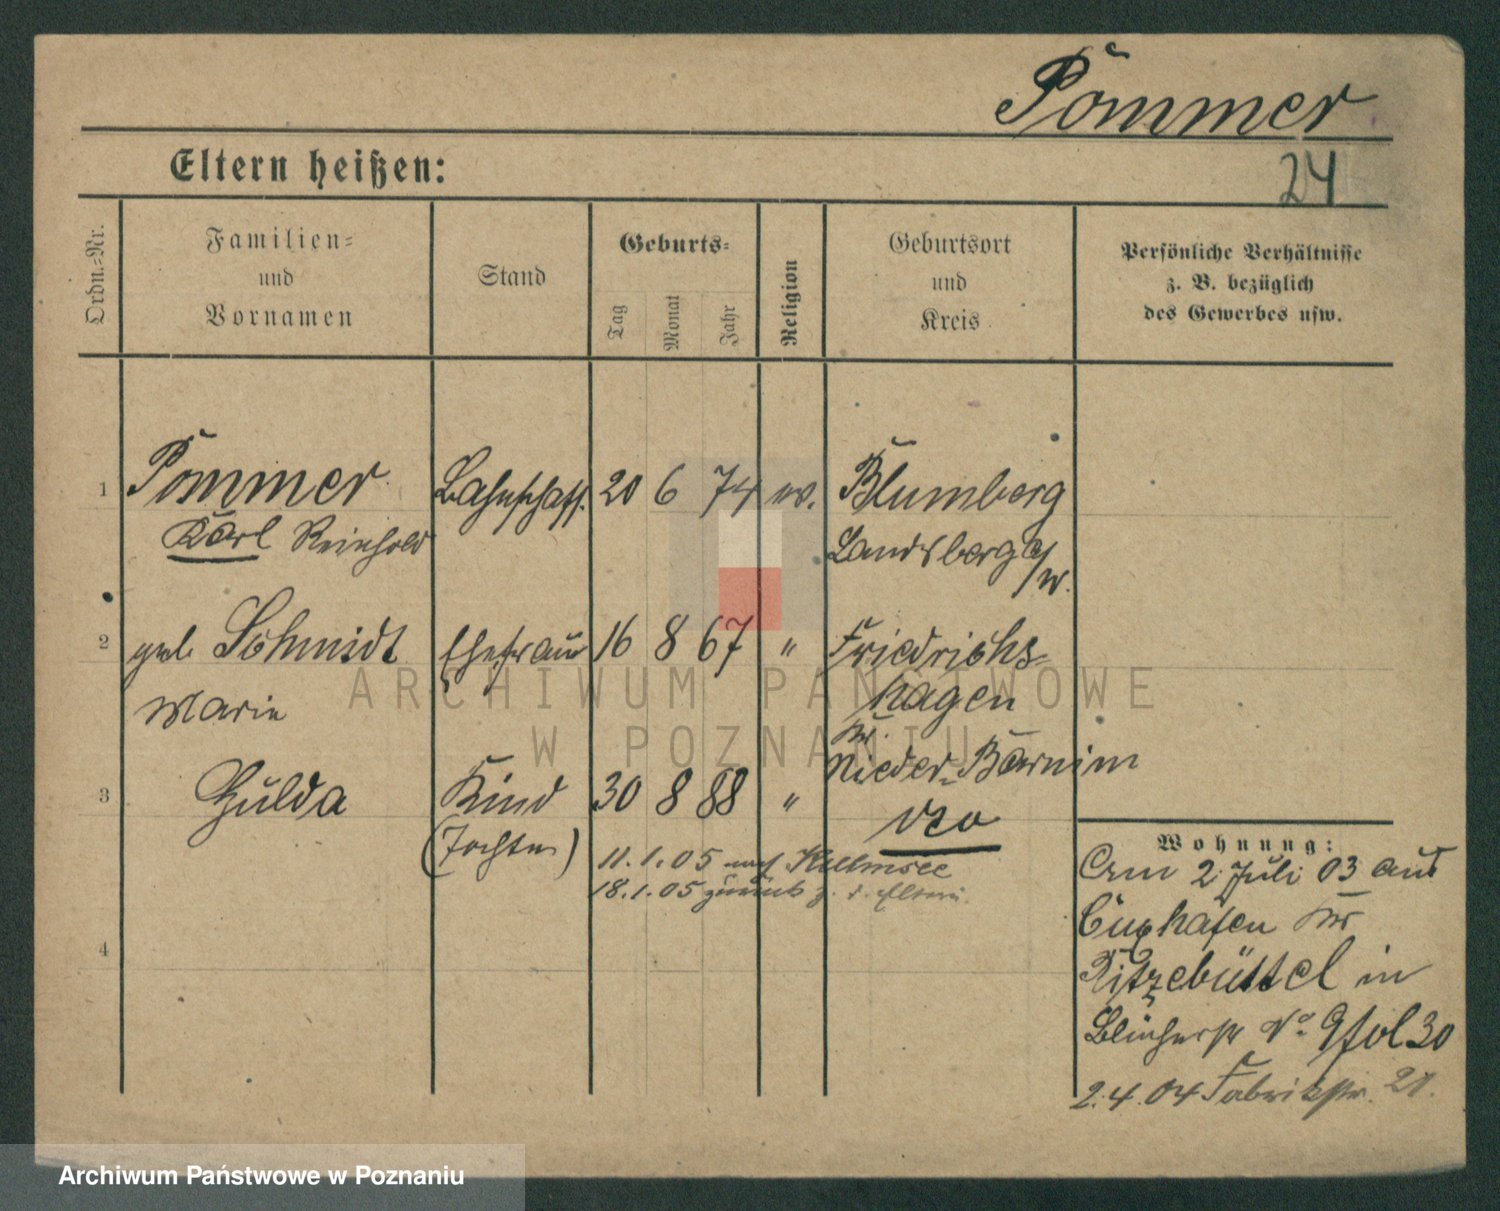 Pommer
Eltern heißen:
24
Ordn.-Nr.
Familien-
und
Vornamen
Stand
Geburts-
Tag
Monat
Jahr
Religion
Geburtsort
und
Kreis
Persönliche Verhältnisse
z. B. bezüglich
des Gewerbes usw.
1 Pommer 20 6 74 ev. Blumberg
Karl Reinhold Landsberg a/w.
2 geb. Schmidt Ehefrau 16 8 67 " Friedrichs-
Marie hagen
Kr.
Nieder-Barnim
3 Hulda Kind 30 8 88 "
(Tochter)
11.1.05 nach Kulmsee
18.1.05 zurück z. d. Eltern.
4
Wohnung:
Am 2 Juli 03 aus
Cuxhafen Kr
Ritzebüttel in
Blücherstr No 9 fol 30
2.4.04 Fabrikstr. 21.
ARCHIWUM PAŃSTWOWE
W POZNANIU
Archiwum Państwowe w Poznaniu